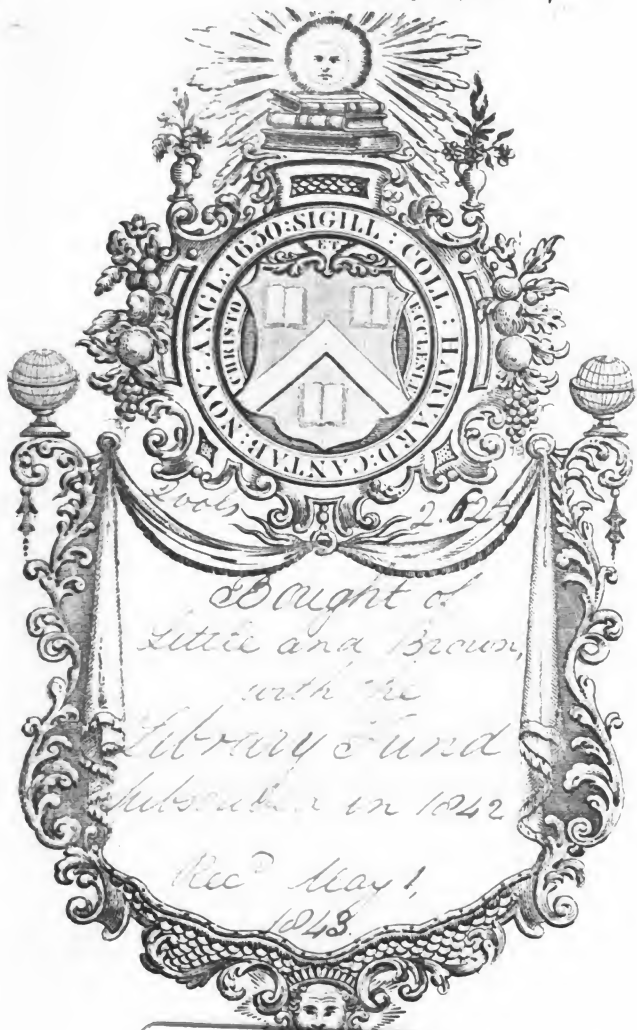 SIGILL : COLL : HARVARD : CANTAB : NOV : ANGL : 1650 :
CHRISTO ET ECCLESIÆ
2 vols 2.62
Bought of
Little and Brown,
with the
Library Fund
Subscribed in 1842
Rec^d May 1,
1843.